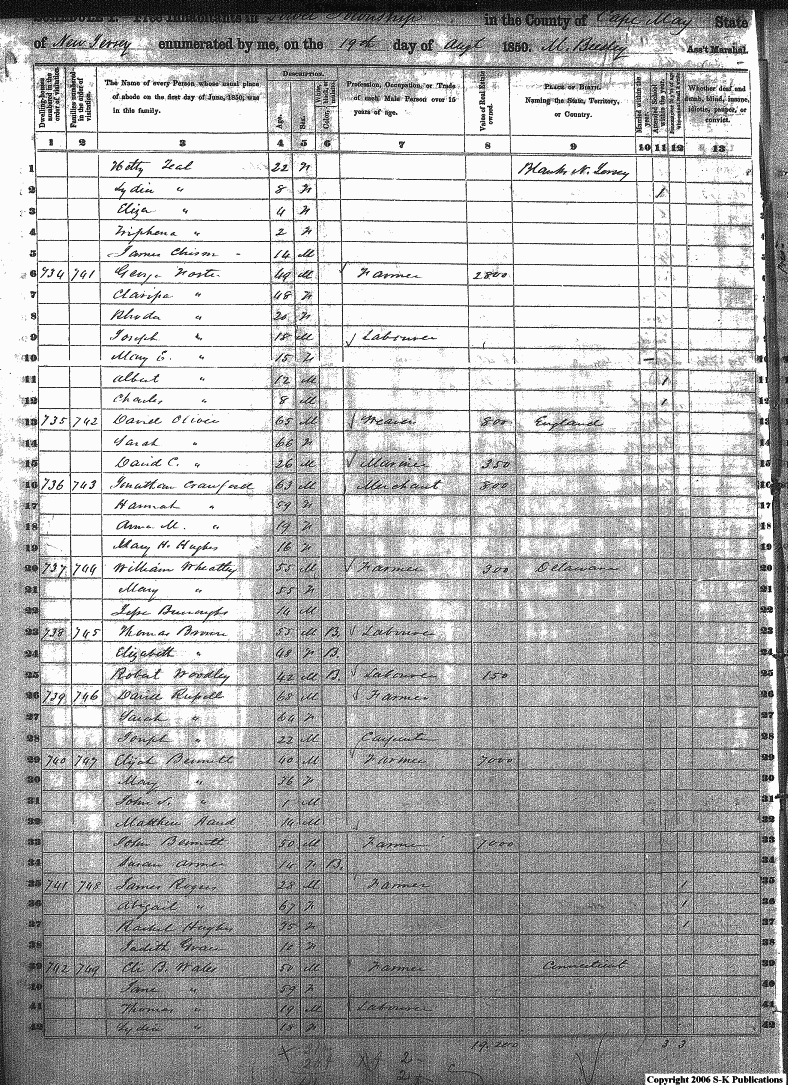 SCHEDULE I. Free Inhabitants in Lower Township in the County of Cape May State
of New Jersey enumerated by me, on the 19th day of Augt 1850. M. Ass't Marshal.
Dwelling-houses numbered in the order of visitation.
Families numbered in the order of visitation.
The Name of every Person whose usual place of abode on the first day of June, 1850, was in this family.
Description.
Age.
Sex.
Color
Profession, Occupation, or Trade of each Male Person over 15 years of age.
Value of Real Estate owned.
Place of Birth. Naming the State, Territory, or Country.
Married within the year.
Attended School within the year.
Whether deaf and dumb, blind, insane, idiotic, pauper, or convict.
1 2 3 4 5 6 7 8 9 10 11 12 13
1 Hetty Teal 22 F Blanks N. Jersey
2 Lydia " 8 F 1
3 Eliza " 4 F
4 Triphena " 2 F
5 James Chism 14 M
6 734 741 George 49 M Farmer 2800
7 " 48 F
8 Rhoda " 20 F
9 Joseph " 18 M Labourer
10 Mary E. " 15 F
11 Albert " 12 M 1
12 Charles " 8 M 1
13 735 742 David Oliver 65 M Weaver 800 England
14 Sarah " 66 F
15 David C. " 26 M Mariner 350
16 736 743 Jonathan Crawford 63 M Merchant 800
17 Hannah " 59 F
18 Anna M. " 19 F
19 Mary H. Hughes 16 F
20 737 744 William Wheatly 55 M Farmer 300 Delaware
21 Mary " 55 F
22 Jesse Burroughs 14 M
23 738 745 Thomas Brown 55 M B. Labourer
24 Elizabeth " 48 F B.
25 Robert Woodley 42 M B. Labourer 150
26 739 746 David Russell 65 M Farmer
27 Sarah " 64 F
28 Joseph " 22 M Carpenter
29 740 747 Elijah Bennett 40 M Farmer 7000
30 Mary " 36 F
31 John " 1 M
32 Matthew Hand 14 M
33 John Bennett 50 M Farmer 7000
34 Susan Armer 14 F B.
35 741 748 James Rogers 28 M Farmer 1
36 Abigail " 67 F 1
37 Rachel Hughes 75 F 1
38 Judith 10 F
39 742 749 Eli B. Wales 50 M Farmer Connecticut
40 Jane " 59 F
41 Thomas " 19 M Labourer
42 Lydia " 15 F
19,200 3 3
Copyright 2006 S-K Publications